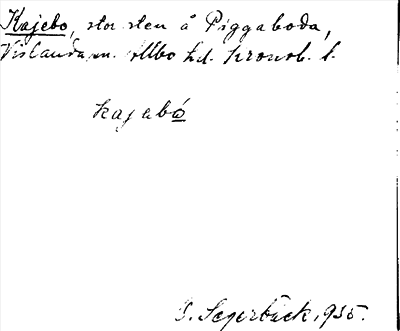 Kajebo, stor sten å Piggaboda,
Vislanda sn. Allbo hd. Kronob. l.
kajabó
O. Segerbäck, 1935.